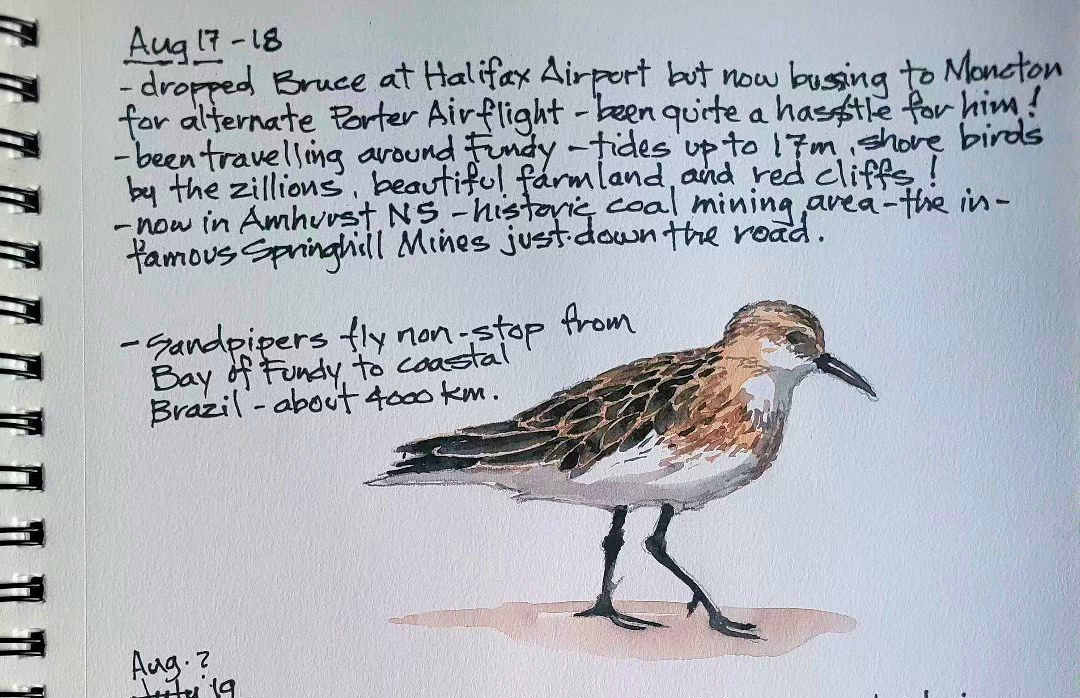 Aug 17-18
- dropped Bruce at Halifax Airport but now bussing to Moncton
for alternate Porter Air flight - been quite a hasstle for him!
- been travelling around Fundy - tides up to 17m, shore birds
by the zillions, beautiful farmland and red cliffs!
- now in Amhurst NS - historic coal mining area - the in-
famous Springhill Mines just down the road.
- Sandpipers fly non-stop from
Bay of Fundy to coastal
Brazil - about 4000 km.
Aug. ?
19